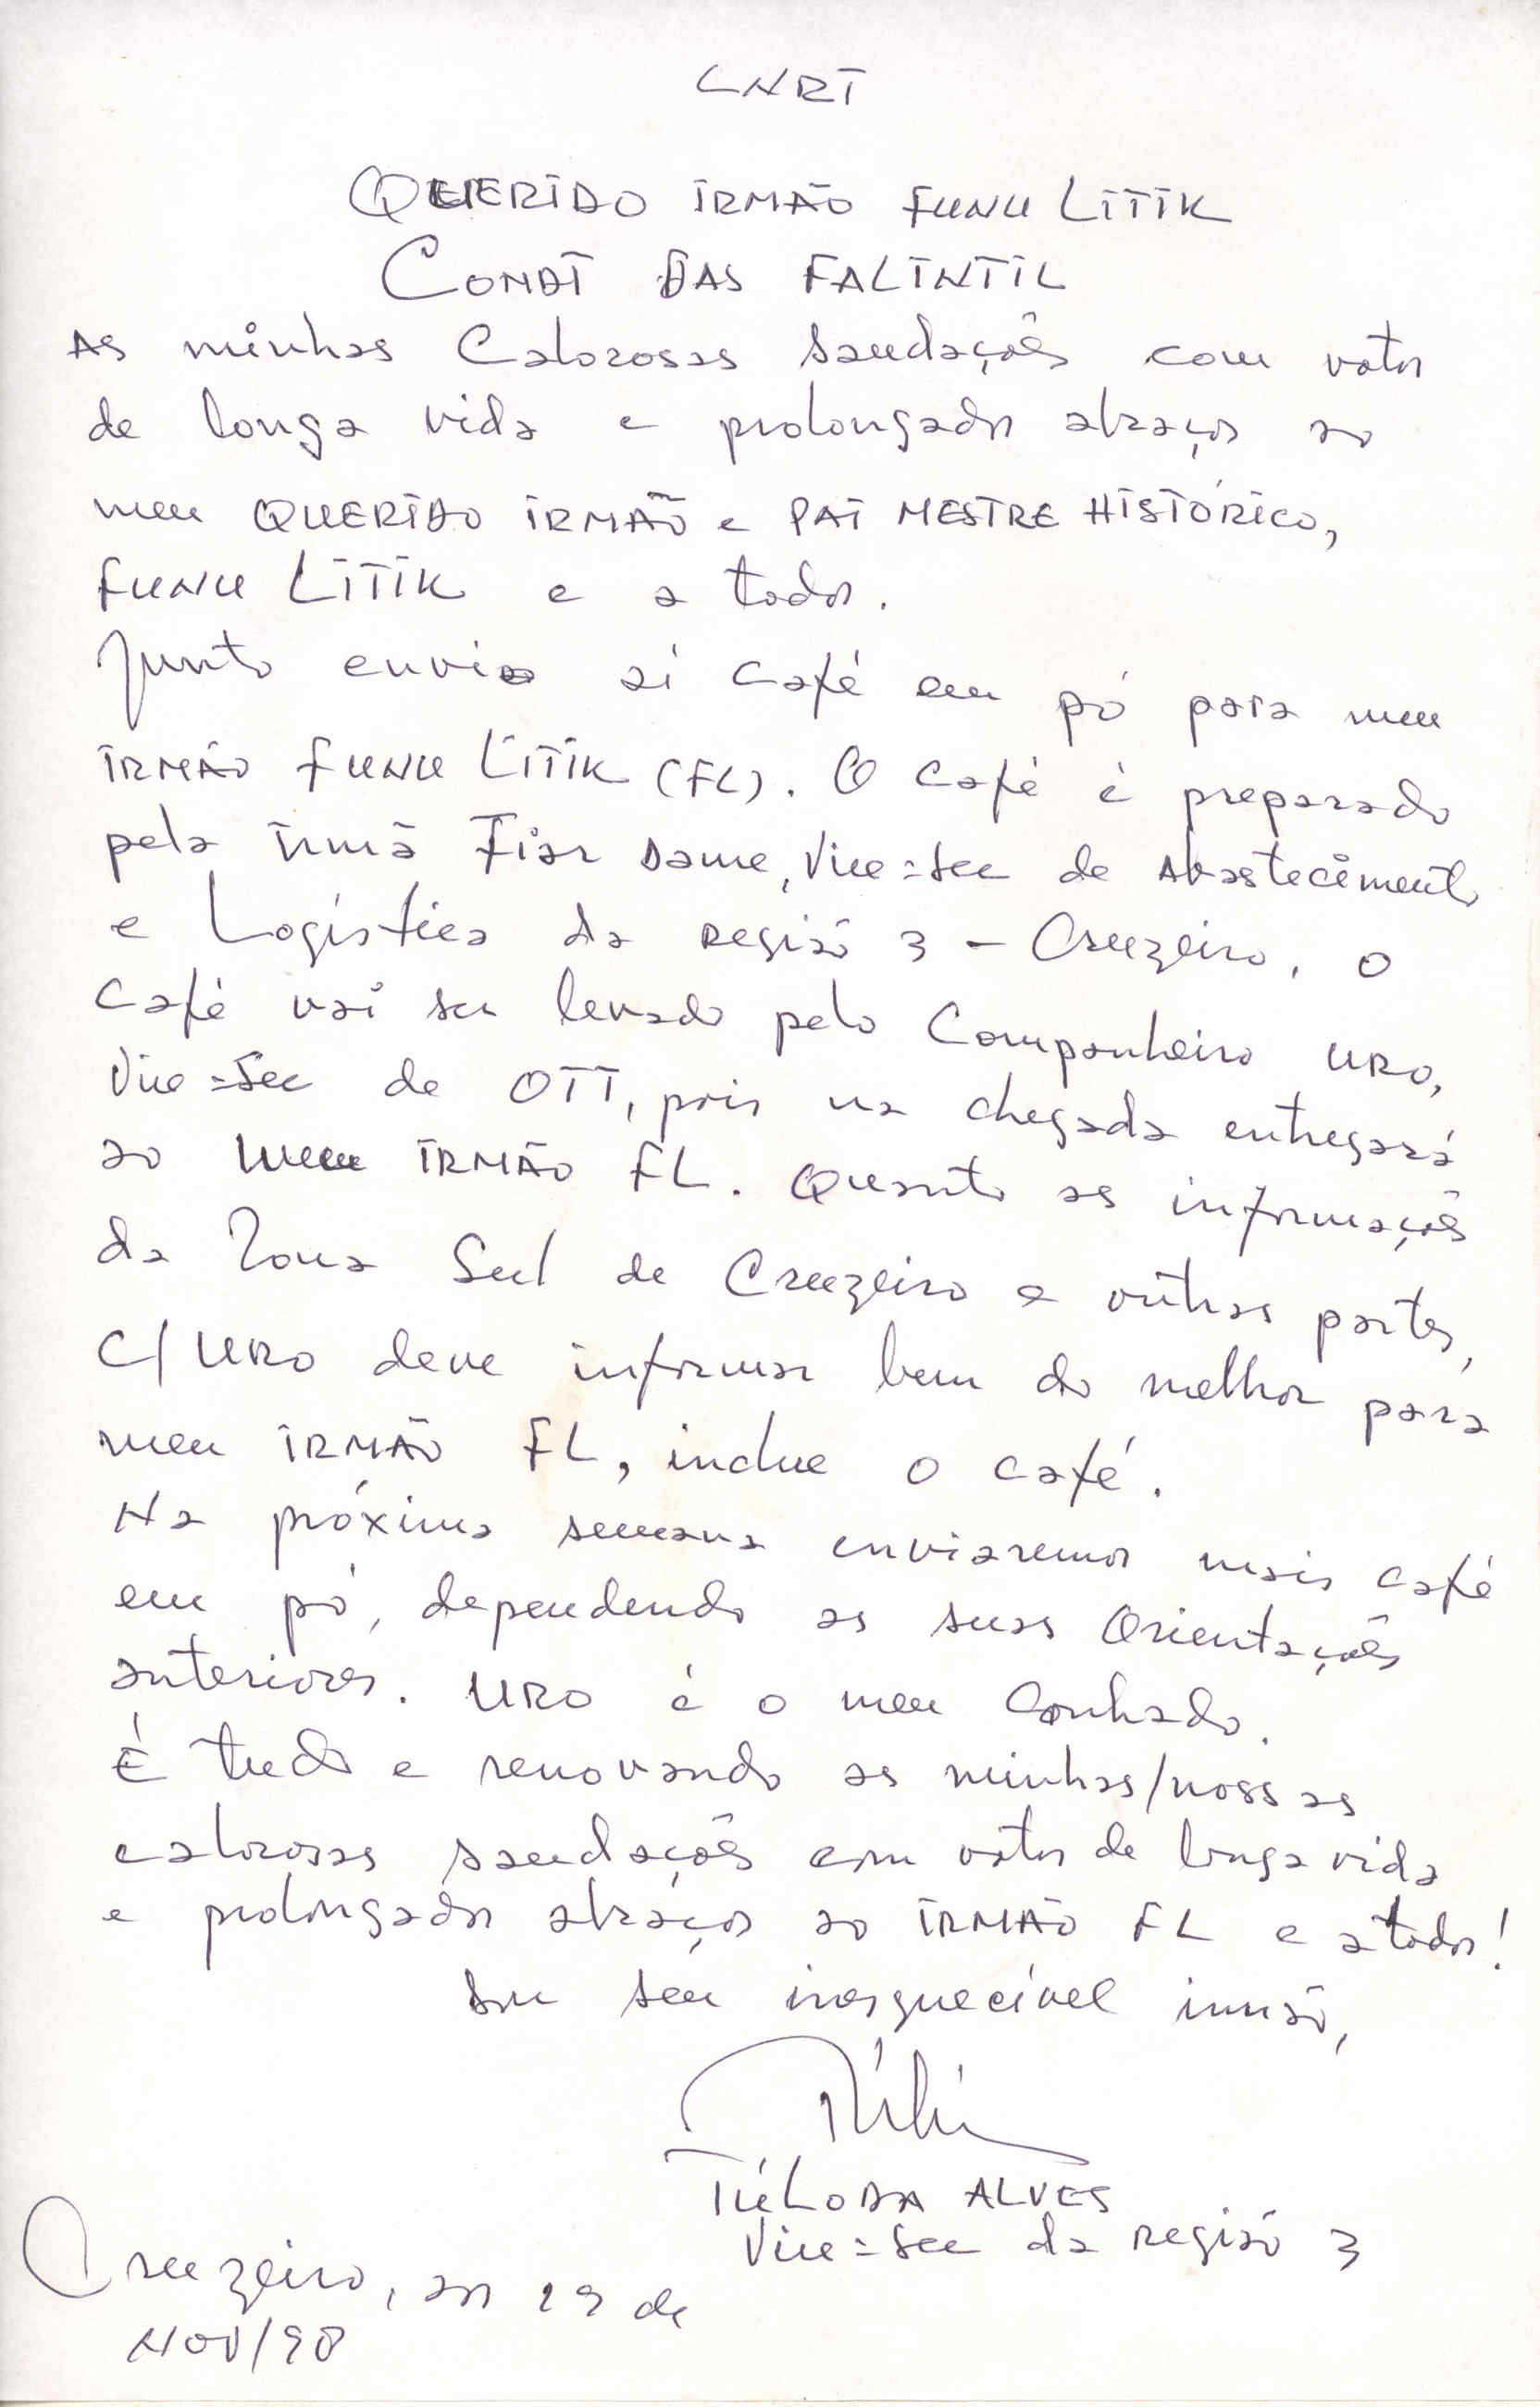 CNRT
QUERIDO IRMÃO FUNU LITIK
COMDT DAS FALINTIL
As minhas calorosas saudações com votos
de longa vida e prolongados abraços ao
meu QUERIDO IRMÃO e PAI MESTRE HISTÓRICO,
FUNU LITIK e a todos.
Junto envio aí café em pó para meu
IRMÃO FUNU LITIK (FL). O café é preparado
pela irmã Fiar Dame, Vice=Sec de Abastecimento
e Logística da Região 3 - Cruzeiro. O
café vai ser levado pelo Companheiro URO,
Vice=Sec de OTT, pois na chegada entregará
ao meu IRMÃO FL. Quanto as informações
da Zona Sul de Cruzeiro e outras partes,
C/URO deve informar bem do melhor para
meu IRMÃO FL, inclue o café.
Na próxima semana enviaremos mais café
em pó, dependendo as suas Orientações
anteriores. URO é o meu conhado.
É tudo e renovando as minhas/nossas
calorosas saudações com votos de longa vida
e prolongados abraços ao IRMÃO FL e a todos!
Sou seu inesquecível irmão,
TÚLODA ALVES
Vice=Sec da Região 3
Cruzeiro, aos 29 de
NOV/98